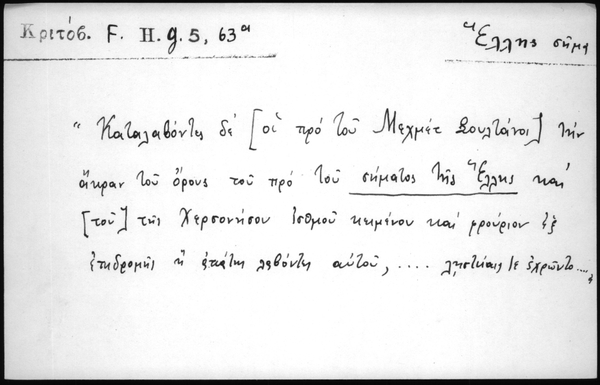 Κριτόβ. F. II. g. 5, 63α
Ἕλλης σῆμα
"Καταλαβόντες δέ [οἱ πρό τοῦ Μεχμέτ Σουλτάνοι] τήν
ἄκραν τοῦ ὄρους τοῦ πρό τοῦ σήματος τῆς Ἕλλης καί
[τοῦ] τῆς Χερσονήσου Ἰσθμοῦ κειμένου καί φρούριον ἐξ
ἐπιδρομῆς ἤ ἀπάτης λαβόντες αὐτοῦ, .... λῃστείαις τε ἐχρῶντο....,